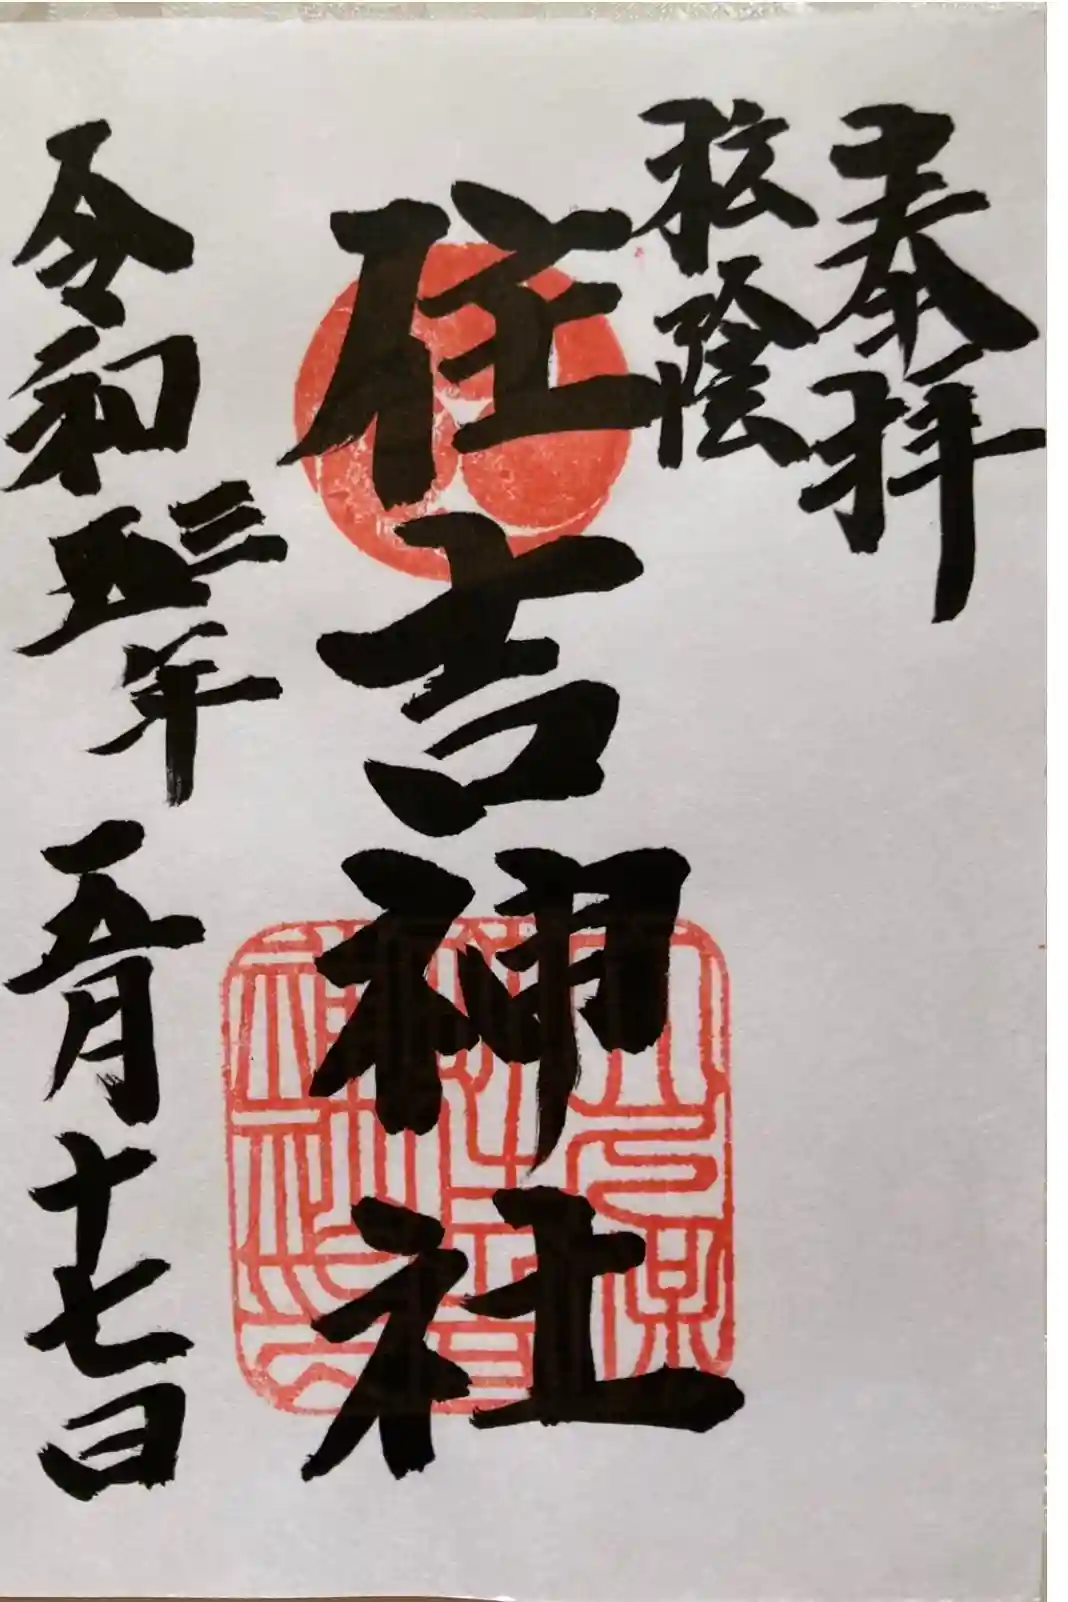 奉拝
松陰
住吉神社
令和五三年五月十七日